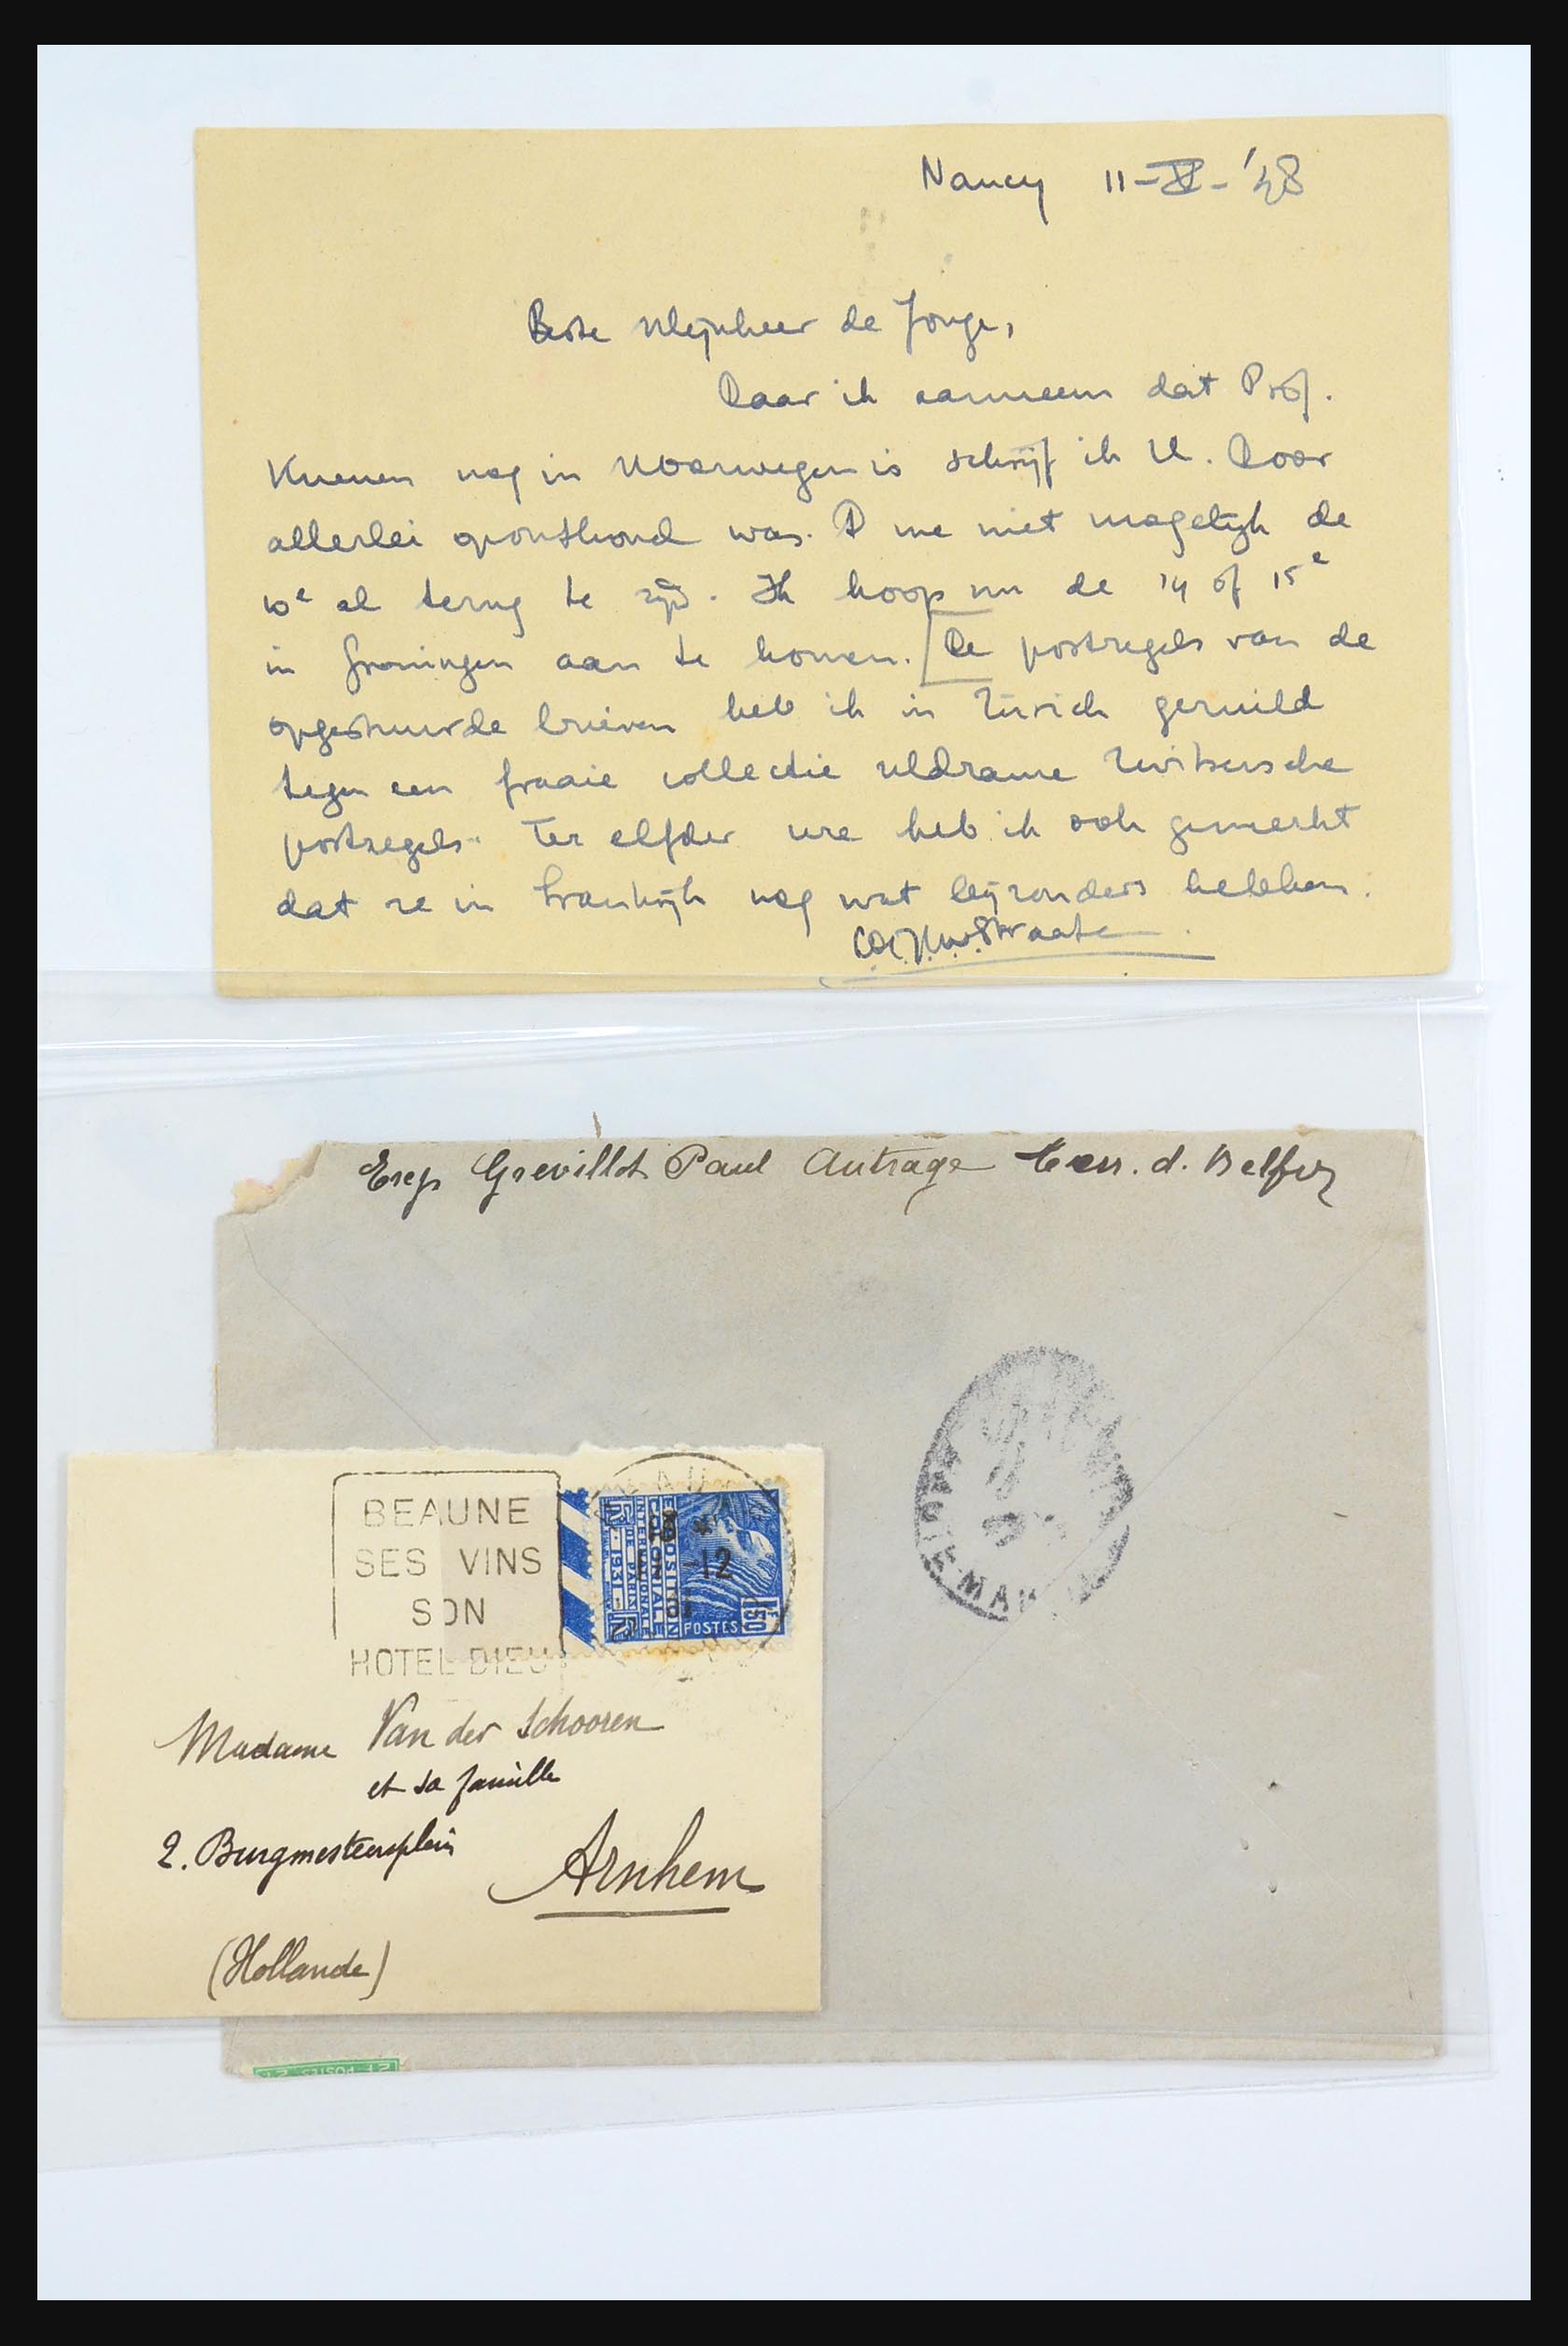 Nancy 11-X-'48
Beste Mijnheer de Jonge,
Daar ik aanneem dat Prof.
Kuenen nog in Noorwegen is schrijf ik U. Door
allerlei oponthoud was me niet mogelijk de
10e al terug te zijn. Ik hoop nu de 14 of 15e
in Groningen aan te komen. [De postzegels van de
opgestuurde brieven heb ik in Zürich geruild
tegen een fraaie collectie Zwitsersche
postzegels. Ter elfder ure heb ik ook gemerkt
dat ze in Frankrijk nog wat bijzonders hebben.
Straate
Exp Grevillot Paul Autrage Terr. d. Belfor
BEAUNE
SES VINS
SON
HOTEL DIEU
EXPOSITION
COLONIALE
INTERNATIONALE
DE PARIS
1931
POSTES
1F50
-12
Madame Van der Schooren
et sa famille
2. Burgmesteersplein
Arnhem
(Hollande)
2F POSTES 2F